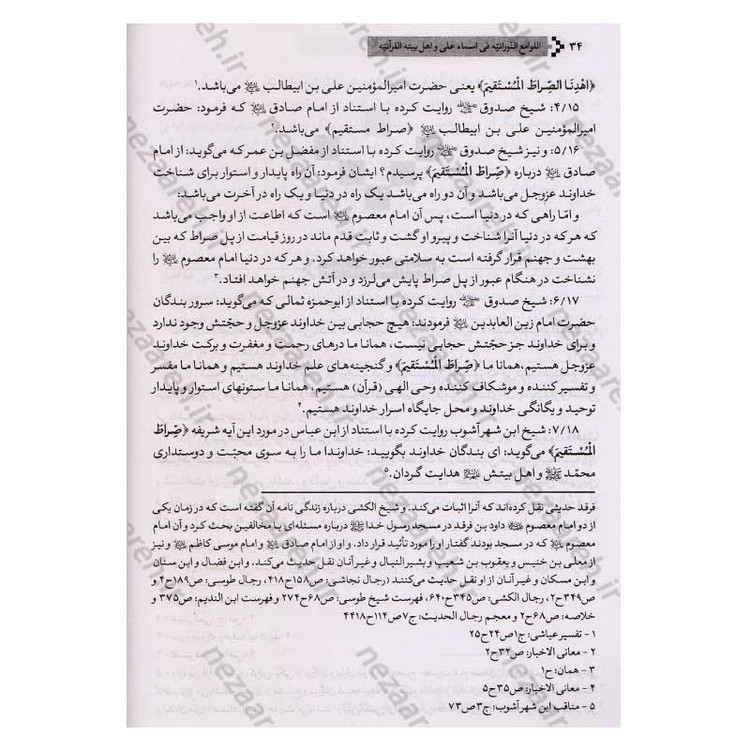 ۳۴ اللوامع النورانیّه فی اسماء علی و اهل بیته القرآنیّه
﴿اهْدِنَا الصِّرَاطَ الْمُسْتَقِیمَ﴾ یعنی حضرت امیرالمؤمنین علی بن ابیطالب می‌باشد.۱
۴/۱۵: شیخ صدوق روایت کرده با استناد از امام صادق که فرمود: حضرت
امیرالمؤمنین علی بن ابیطالب ﴿صراط مستقیم﴾ می‌باشد.۲
۵/۱۶: و نیز شیخ صدوق روایت کرده با استناد از مفضل بن عمر که می‌گوید: از امام
صادق درباره ﴿صِرَاطَ الْمُسْتَقِیمَ﴾ پرسیدم؟ ایشان فرمود: آن راه پایدار و استوار برای شناخت
خداوند عزوجل می‌باشد و آن دو راه می‌باشد یک راه در دنیا و یک راه در آخرت می‌باشد:
و امّا راهی که در دنیا است، پس آن امام معصوم است که اطاعت از او واجب می‌باشد
که هر که در دنیا آنرا شناخت و پیرو او گشت و ثابت قدم ماند در روز قیامت از پل صراط که بین
بهشت و جهنم قرار گرفته است به سلامتی عبور خواهد کرد. و هر که در دنیا امام معصوم را
نشناخت در هنگام عبور از پل صراط پایش می‌لرزد و در آتش جهنم خواهد افتاد.۳
۶/۱۷: شیخ صدوق روایت کرده با استناد از ابوحمزه ثمالی که می‌گوید: سرور بندگان
حضرت امام زین العابدین فرمودند: هیچ حجابی بین خداوند عزوجل و حجّتش وجود ندارد
و برای خداوند جز حجّتش حجابی نیست، همانا ما درهای رحمت و مغفرت و برکت خداوند
عزوجل هستیم، همانا ما ﴿صِرَاطَ الْمُسْتَقِیمَ﴾ و گنجینه‌های علم خداوند هستیم و همانا ما مفسر
و تفسیر کننده و موشکاف کننده وحی الهی (قرآن) هستیم، همانا ما ستونهای استوار و پایدار
توحید و یگانگی خداوند و محل جایگاه اسرار خداوند هستیم.۴
۷/۱۸: شیخ ابن شهر آشوب روایت کرده با استناد از ابن عباس در مورد این آیه شریفه ﴿صِرَاطَ
الْمُسْتَقِیمَ﴾ می‌گوید: ای بندگان خداوند بگویید: خداوندا ما را به سوی محبّت و دوستداری
محمّد ﷺ و اهل بیتش هدایت گردان.۵
فرقد حدیثی نقل کرده‌اند که آنرا اثبات می‌کند. و شیخ الکشی درباره زندگی نامه آن گفته است که در زمان یکی
از دو امام معصوم داود بن فرقد در مسجد رسول خدا ﷺ درباره مسئله‌ای با مخالفین بحث کرد و آن امام
معصوم که در مسجد بودند گفتار او را مورد تأئید قرار داد. و او از امام صادق و امام موسی کاظم و نیز
از معلی بن خنیس و یعقوب بن شعیب و بشیر النبال و غیر آنان از او نقل حدیث می‌کند. و ابن فضال و ابن سنان
و ابن مسکان و غیر آنان از او نقل حدیث می‌کنند (رجال نجاشی: ص۱۵۸ح۴۱۸، رجال طوسی: ص۱۸۹ح۴ و
ص۳۴۹ح۲، رجال الکشی: ص۳۴۵ح۶۴۰، فهرست شیخ طوسی: ص۶۸ح۲۷۴ و فهرست ابن الندیم: ص۳۷۵ و
خلاصه: ص۶۸ح۲ و معجم رجال الحدیث: ج۷ص۱۱۴ح۴۴۱۸
۱ - تفسیر عیاشی: ج۱ص۲۴ح۲۵
۲ - معانی الاخبار: ص۳۲ح۲
۳ - همان: ح۱
۴ - معانی الاخبار: ص۳۵ح۵
۵ - مناقب ابن شهر آشوب: ج۳ص۷۳
nezaareh.ir